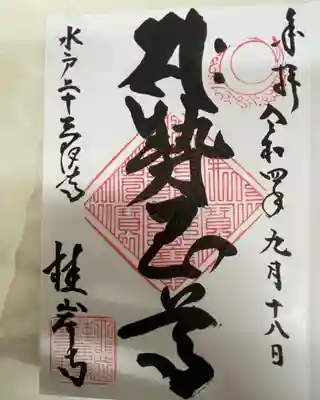 奉拝 令和四年 九月十八日
勢至尊
水戸二十三夜尊
桂岸寺